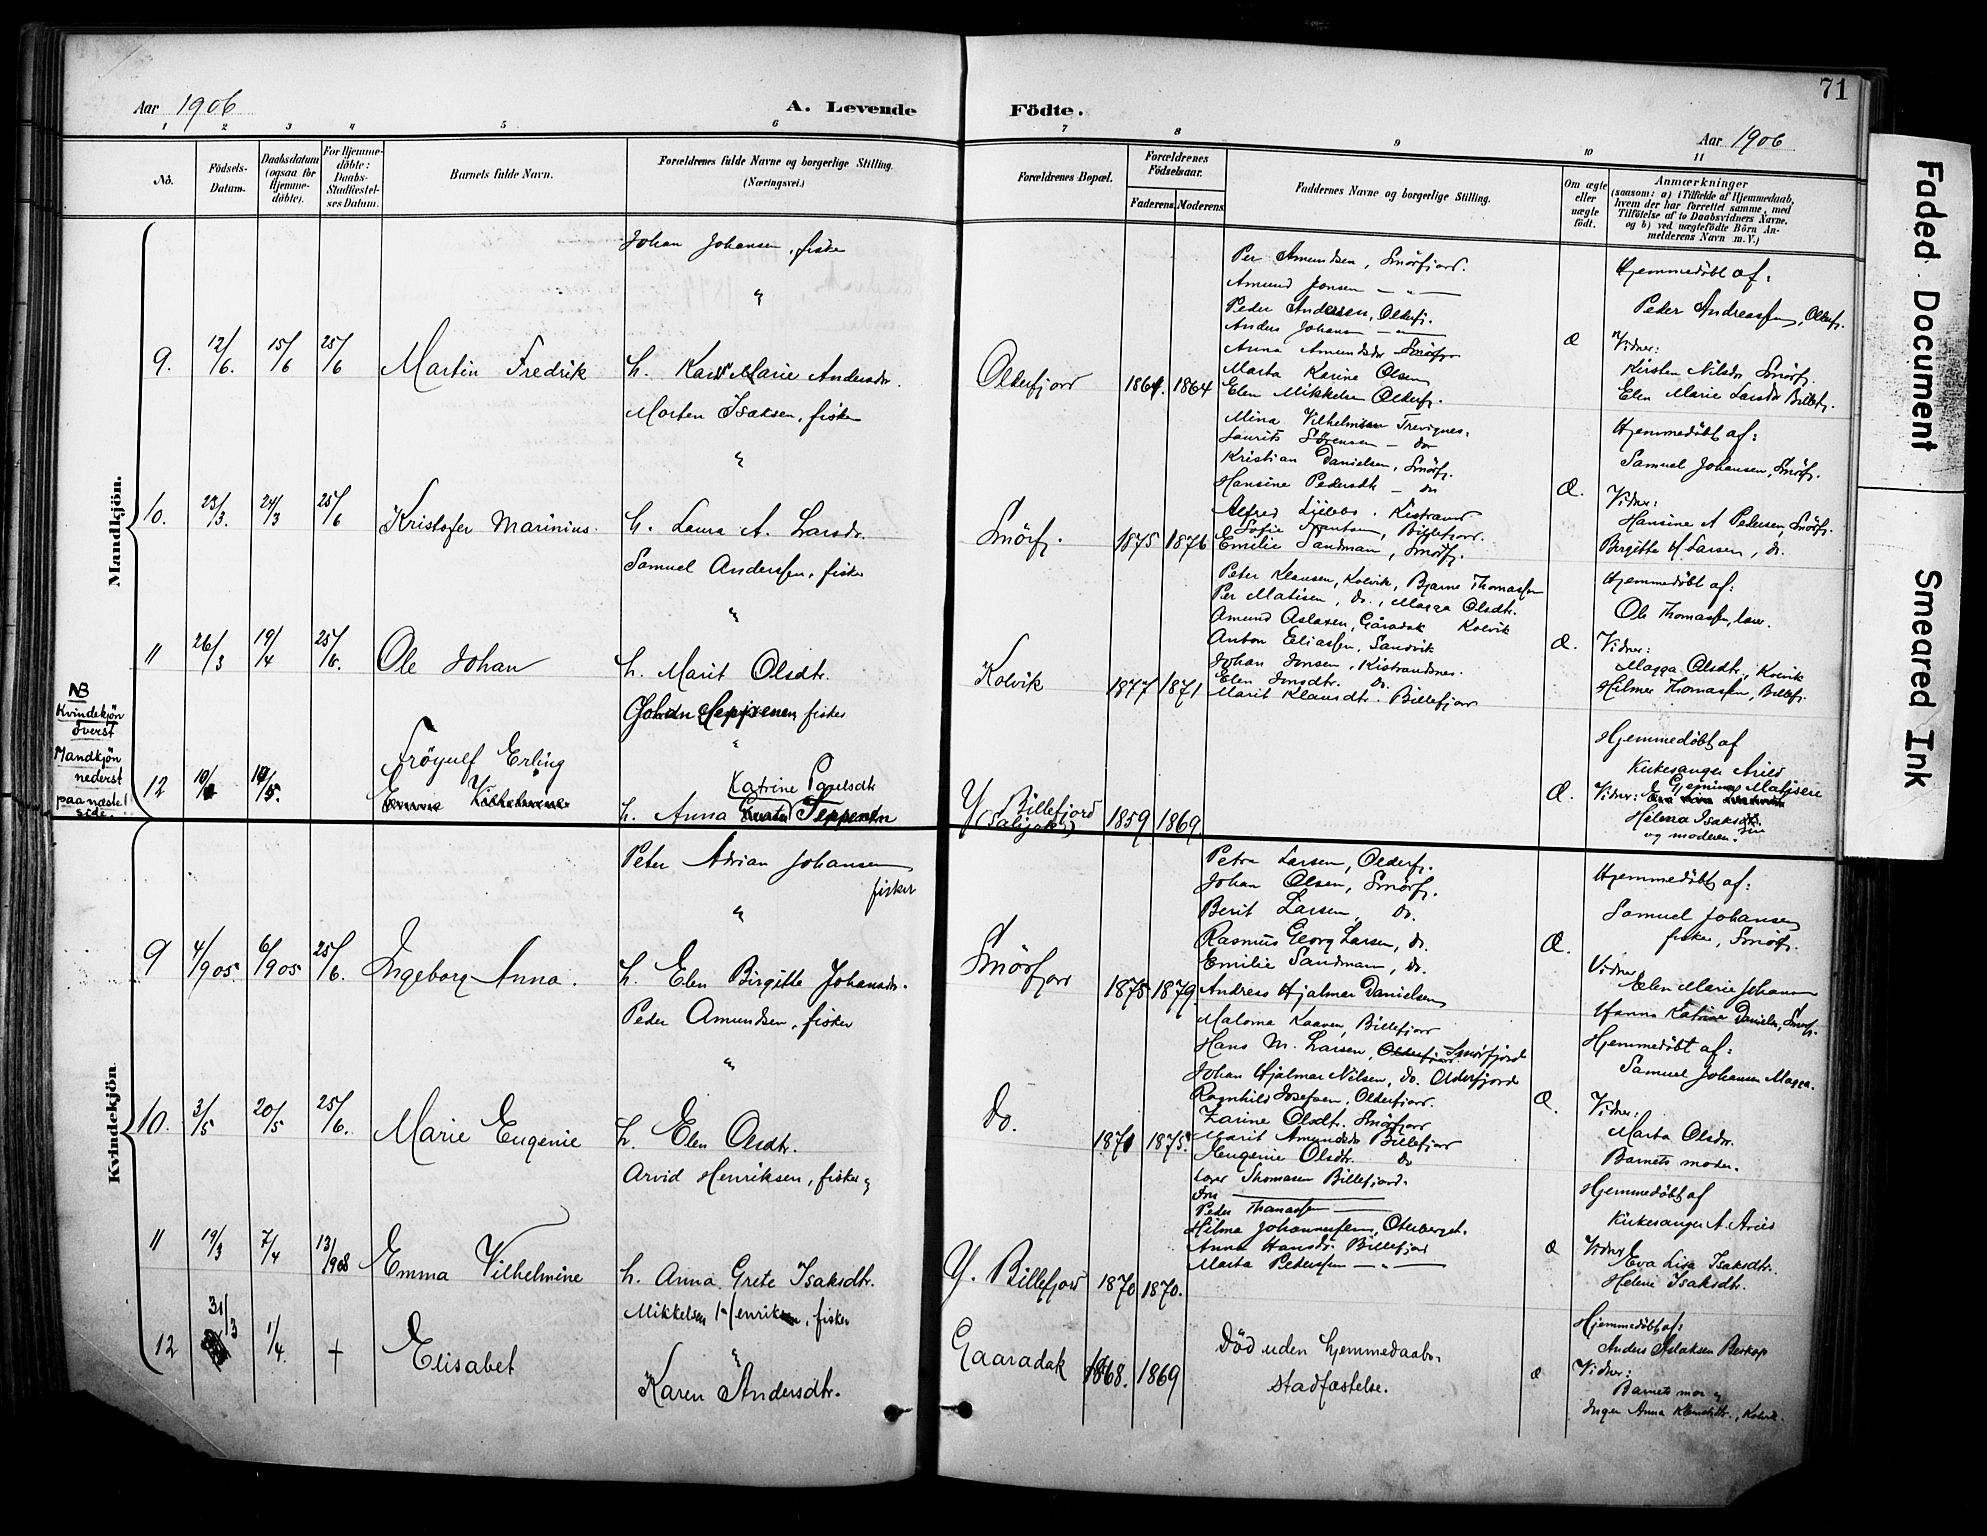 71
Aar 1906
A. Levende Födte.
Aar 1906
1 2 3 4 5 6 7 8 9 10 11
No.
Födsels-
Datum.
Daabsdatum
(ogsaa for
Hjemme-
döbte).
For Hjemme-
döbte:
Daabs-
Stadfæstel-
ses Datum.
Barnets fulde Navn.
Forældrenes fulde Navne og borgerlige Stilling.
(Næringsvei.)
Forældrenes Bopæl.
Forældrenes
Födselsaar.
Faderens.
Moderens.
Faddernes Navne og borgerlige Stilling.
Om ægte
eller
uægte
födt.
Anmærkninger
(saasom: a) i Tilfælde af Hjemmedaab,
hvem der har forrettet samme, med
Tilföielse af to Daabsvidners Navne,
og b) ved uægtefödte Börn An-
melderens Navn m. V.)
Mandkjön.
9.
12/6.
15/6
25/6
Martin Fredrik
Johan Johansen, fisker
"
h. Marie Andersdr.
Olderfjord
1864. 1864
Per Amundsen, Smörfjord.
Amund Jonsen — " —
Peder Andersen, Olderfj.
Anders Johansen — " —
Anna Amundsdr. Smörfj
Marta Karine Olsen
Elen Mikkelsen Olderfj.
æ
Hjemmedöbt af:
Peder Andreassen, Olderfj.
Vidner:
Kirsten Nilsdr Smörfj.
Elen Marie Larsdr Billefj.
10.
23/3.
24/3
25/6
Kristofer Marinius.
Morten Isaksen, fisker
"
h. Laura A. Larsdr.
Smörfj.
1875 1876
Mina Vilhelmsen Trevignes.
Laurits Sörensen — do
Kristian Danielsen, Smörfj.
Hansine Pedersdt — do
Alfred Kistrand
Sofie Billefjord.
Emilie Sandman, Smörfj.
Æ.
Hjemmedöbt af:
Samuel Johansen, Smörfj.
Vidner:
Hansine A Pedersen, Smörfj.
Birgitte M Larsen, do.
11
26/3
19/4
25/6.
Ole Johan
Samuel Anderssen, fisker
"
h. Marit Olsdtr.
Kolvik
1877 1871
Peter Klausen, Kolvik, Bjarne Thomassen
Per Matisen, do., Magga Olsdtr.
Amund Aslaxen, Gåradak Kolvik
Anton Eliassen, Sandvik
Johan Jonsen, Kistrandnes.
Elen Jonsdtr. Do.
Marit Klausdtr. Billefjord
Æ.
Hjemmedöbt af:
Ole Thomassen,
Vidner:
Magga Olsdtr, Kolvik
Hilmer Thomassen, Billefj.
NB
Kvindekjön
överst
Mandkjön
nederst
paa næste
side.
12
10/
10/5.
Fröyulf Erling
Emma Vilhelmine
Johan Seppenen fisker
"
Katrine Paulsdt
h. Anna Seppenen
Y. Billefjord
1859 1869
Æ.
Hjemmedöbt af
Kirkesanger Aries
Vidner:
Helena Isaksdtr
og moderen.
Kvindekjön.
9
4/905
6/905
25/6.
Ingeborg Anna.
Peter Adrian Johansen
fisker
"
h. Elen Birgitte Johansdr.
Smörfjord
1875 1879
Petra Larsen, Olderfj.
Johan Olsen, Smörfj.
Berit Larsen, Do.
Rasmus Georg Larsen, do.
Emilie Sandmann, do.
Andreas Hjalmar Danielsen
Æ.
Hjemmedöbt af:
Samuel Johansen
fisker, Smörfj.
Vidner
Elen Marie Johansen
Hanna Katrine Danielsen, Smörfj.
10.
3/5
20/5
25/6.
Marie Eugenie
Peder Amundsen, fisker
"
h. Elen Olsdtr.
Do.
1871 1875
Maloma Kaaven, Billefjord
Hans M. Larsen, Olderfjord. Smörfjord
Johan Hjalmar Nilsen, do. Olderfjord
Ragnhild Josefsen, Olderfjord.
Zarine Olsdt. Smörfjord
Marit Amundsdr Billefjord
Eugenie Olsdtr. Do
Æ.
Hjemmedöbt af:
Samuel Johansen Magga.
Vidner:
Marta Olsdtr.
Barnets moder.
11
19/3
7/4
13/908
Emma Vilhelmine
Arvid Henriksen, fisker
h. Anna Grete Isaksdtr.
Y. Billefjord
1870 1870.
Thomasen Billefjord.
Peder Thomassen —
Hilma Johannessen, Oterberget.
Anna Hansdr. Billefjord
Marta Pederssen — " —
æ
Hjemmedöbt af
Kirkesanger A. Aries
Vidner
Eva Lisa Isaksdtr.
Helene Isaksdtr.
12
31/3
1/4.
+
Elisabet
Mikkelsen Henriksen, fisker
"
Karen Andersdtr.
Gaaradak
1868. 1869
Död uden hjemmedaabs-
stadfæstelse.
æ
Hjemmedöbt af:
Anders Aslaksen Berkop
Vidner:
Barnets mor
Inger Anna Klemetsdtr., Kolvik.
Faded Document
Smeared Ink